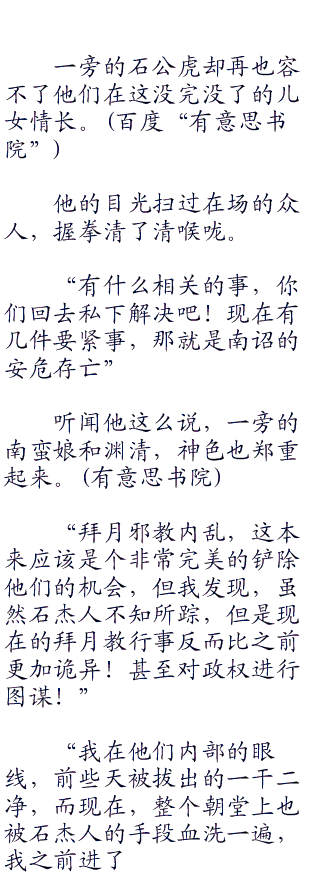 一旁的石公虎却再也容
不了他们在这没完没了的儿
女情长。(百度“有意思书
院”)
他的目光扫过在场的众
人，握拳清了清喉咙。
“有什么相关的事，你
们回去私下解决吧！现在有
几件要紧事，那就是南诏的
安危存亡”
听闻他这么说，一旁的
南蛮娘和渊清，神色也郑重
起来。(有意思书院)
“拜月邪教内乱，这本
来应该是个非常完美的铲除
他们的机会，但我发现，虽
然石杰人不知所踪，但是现
在的拜月教行事反而比之前
更加诡异！甚至对政权进行
图谋！”
“我在他们内部的眼
线，前些天被拔出的一干二
净，而现在，整个朝堂上也
被石杰人的手段血洗一遍，
我之前进了